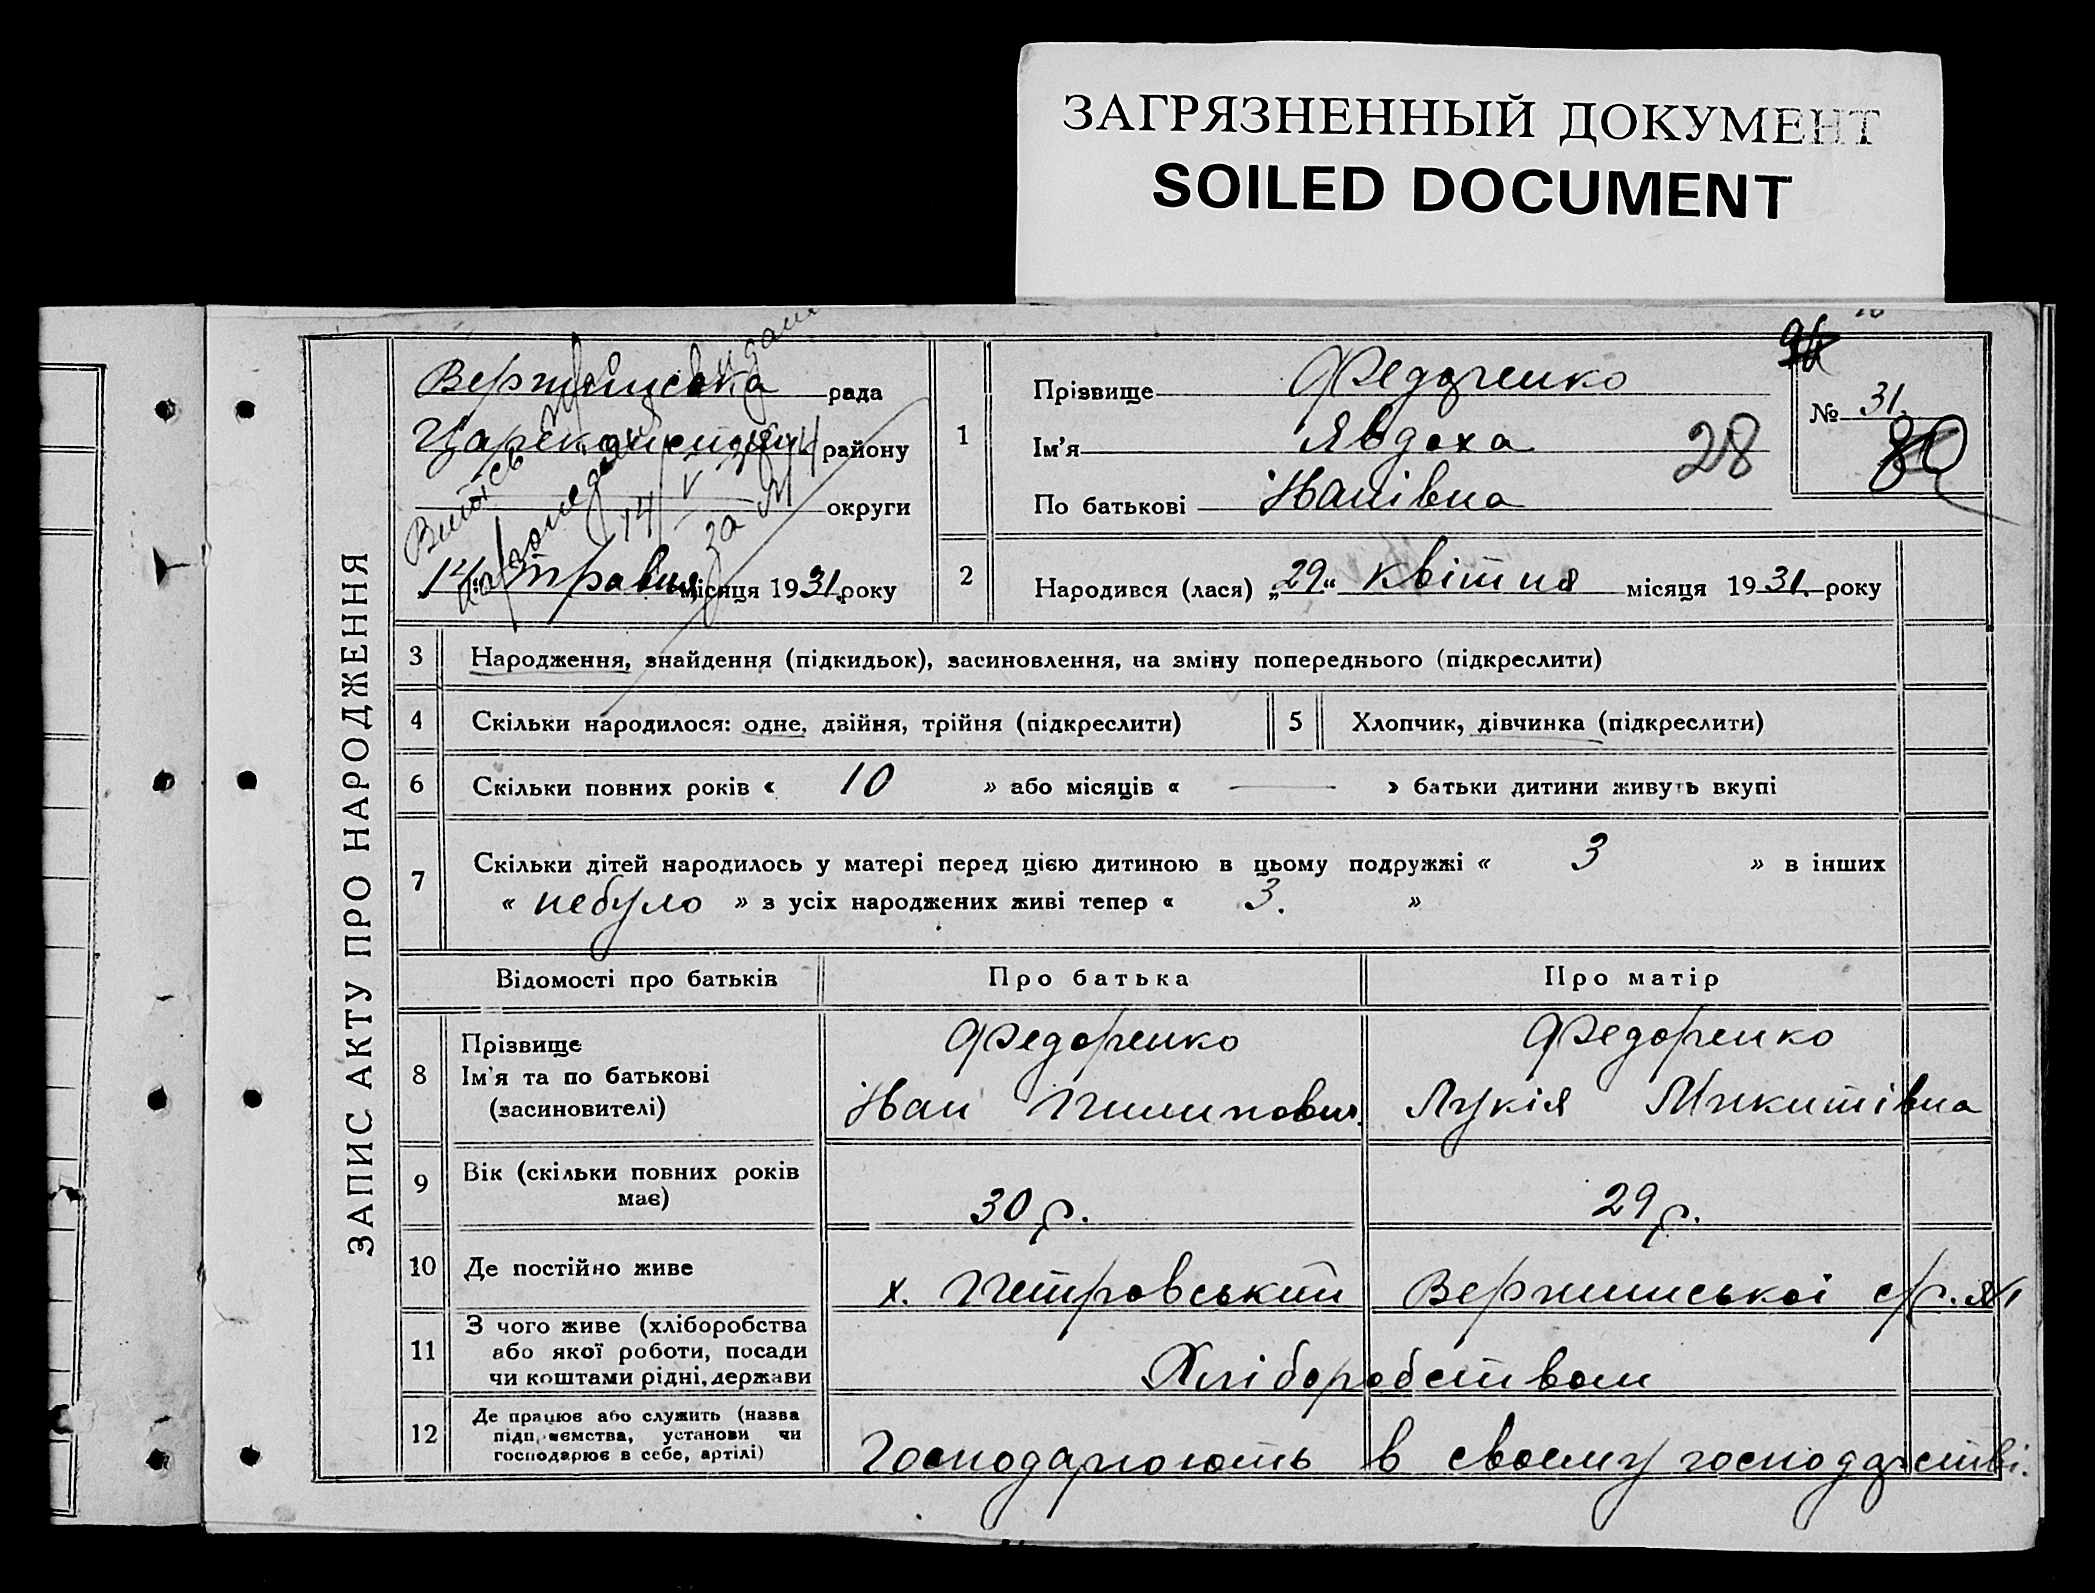 ЗАГРЯЗНЕННЫЙ ДОКУМЕНТ
SOILED DOCUMENT
ЗАПИС АКТУ ПРО НАРОДЖЕННЯ
рада
району
округи
14 травня місяця 1931 року
1
Прізвище Федоренко
Ім'я Явдоха
По батькові Іванівна
28
№ 31
80
2
Народився (лася) „29" квітня місяця 1931 року
3 Народження, знайдення (підкидьок), засиновлення, на зміну попереднього (підкреслити)
4 Скільки народилося: одне, двійня, трійня (підкреслити)
5 Хлопчик, дівчинка (підкреслити)
6 Скільки повних років « 10 » або місяців « — » батьки дитини живуть вкупі
7 Скільки дітей народилось у матері перед цією дитиною в цьому подружжі « 3 » в інших
« небуло » з усіх народжених живі тепер « 3. »
Відомості про батьків Про батька Про матір
8 Прізвище
Ім'я та по батькові
(засиновителі)
Федоренко
Іван Пилипович
Федоренко
Лукія Микитівна
9 Вік (скільки повних років
має)
30 р. 29 р.
10 Де постійно живе х. Петровський
11 З чого живе (хліборобства
або якої роботи, посади
чи коштами рідні, держави
Хліборобством
12 Де працює або служить (назва
підприємства, установи чи
господарює в себе, артілі)
Господарюють в своєму господарстві.